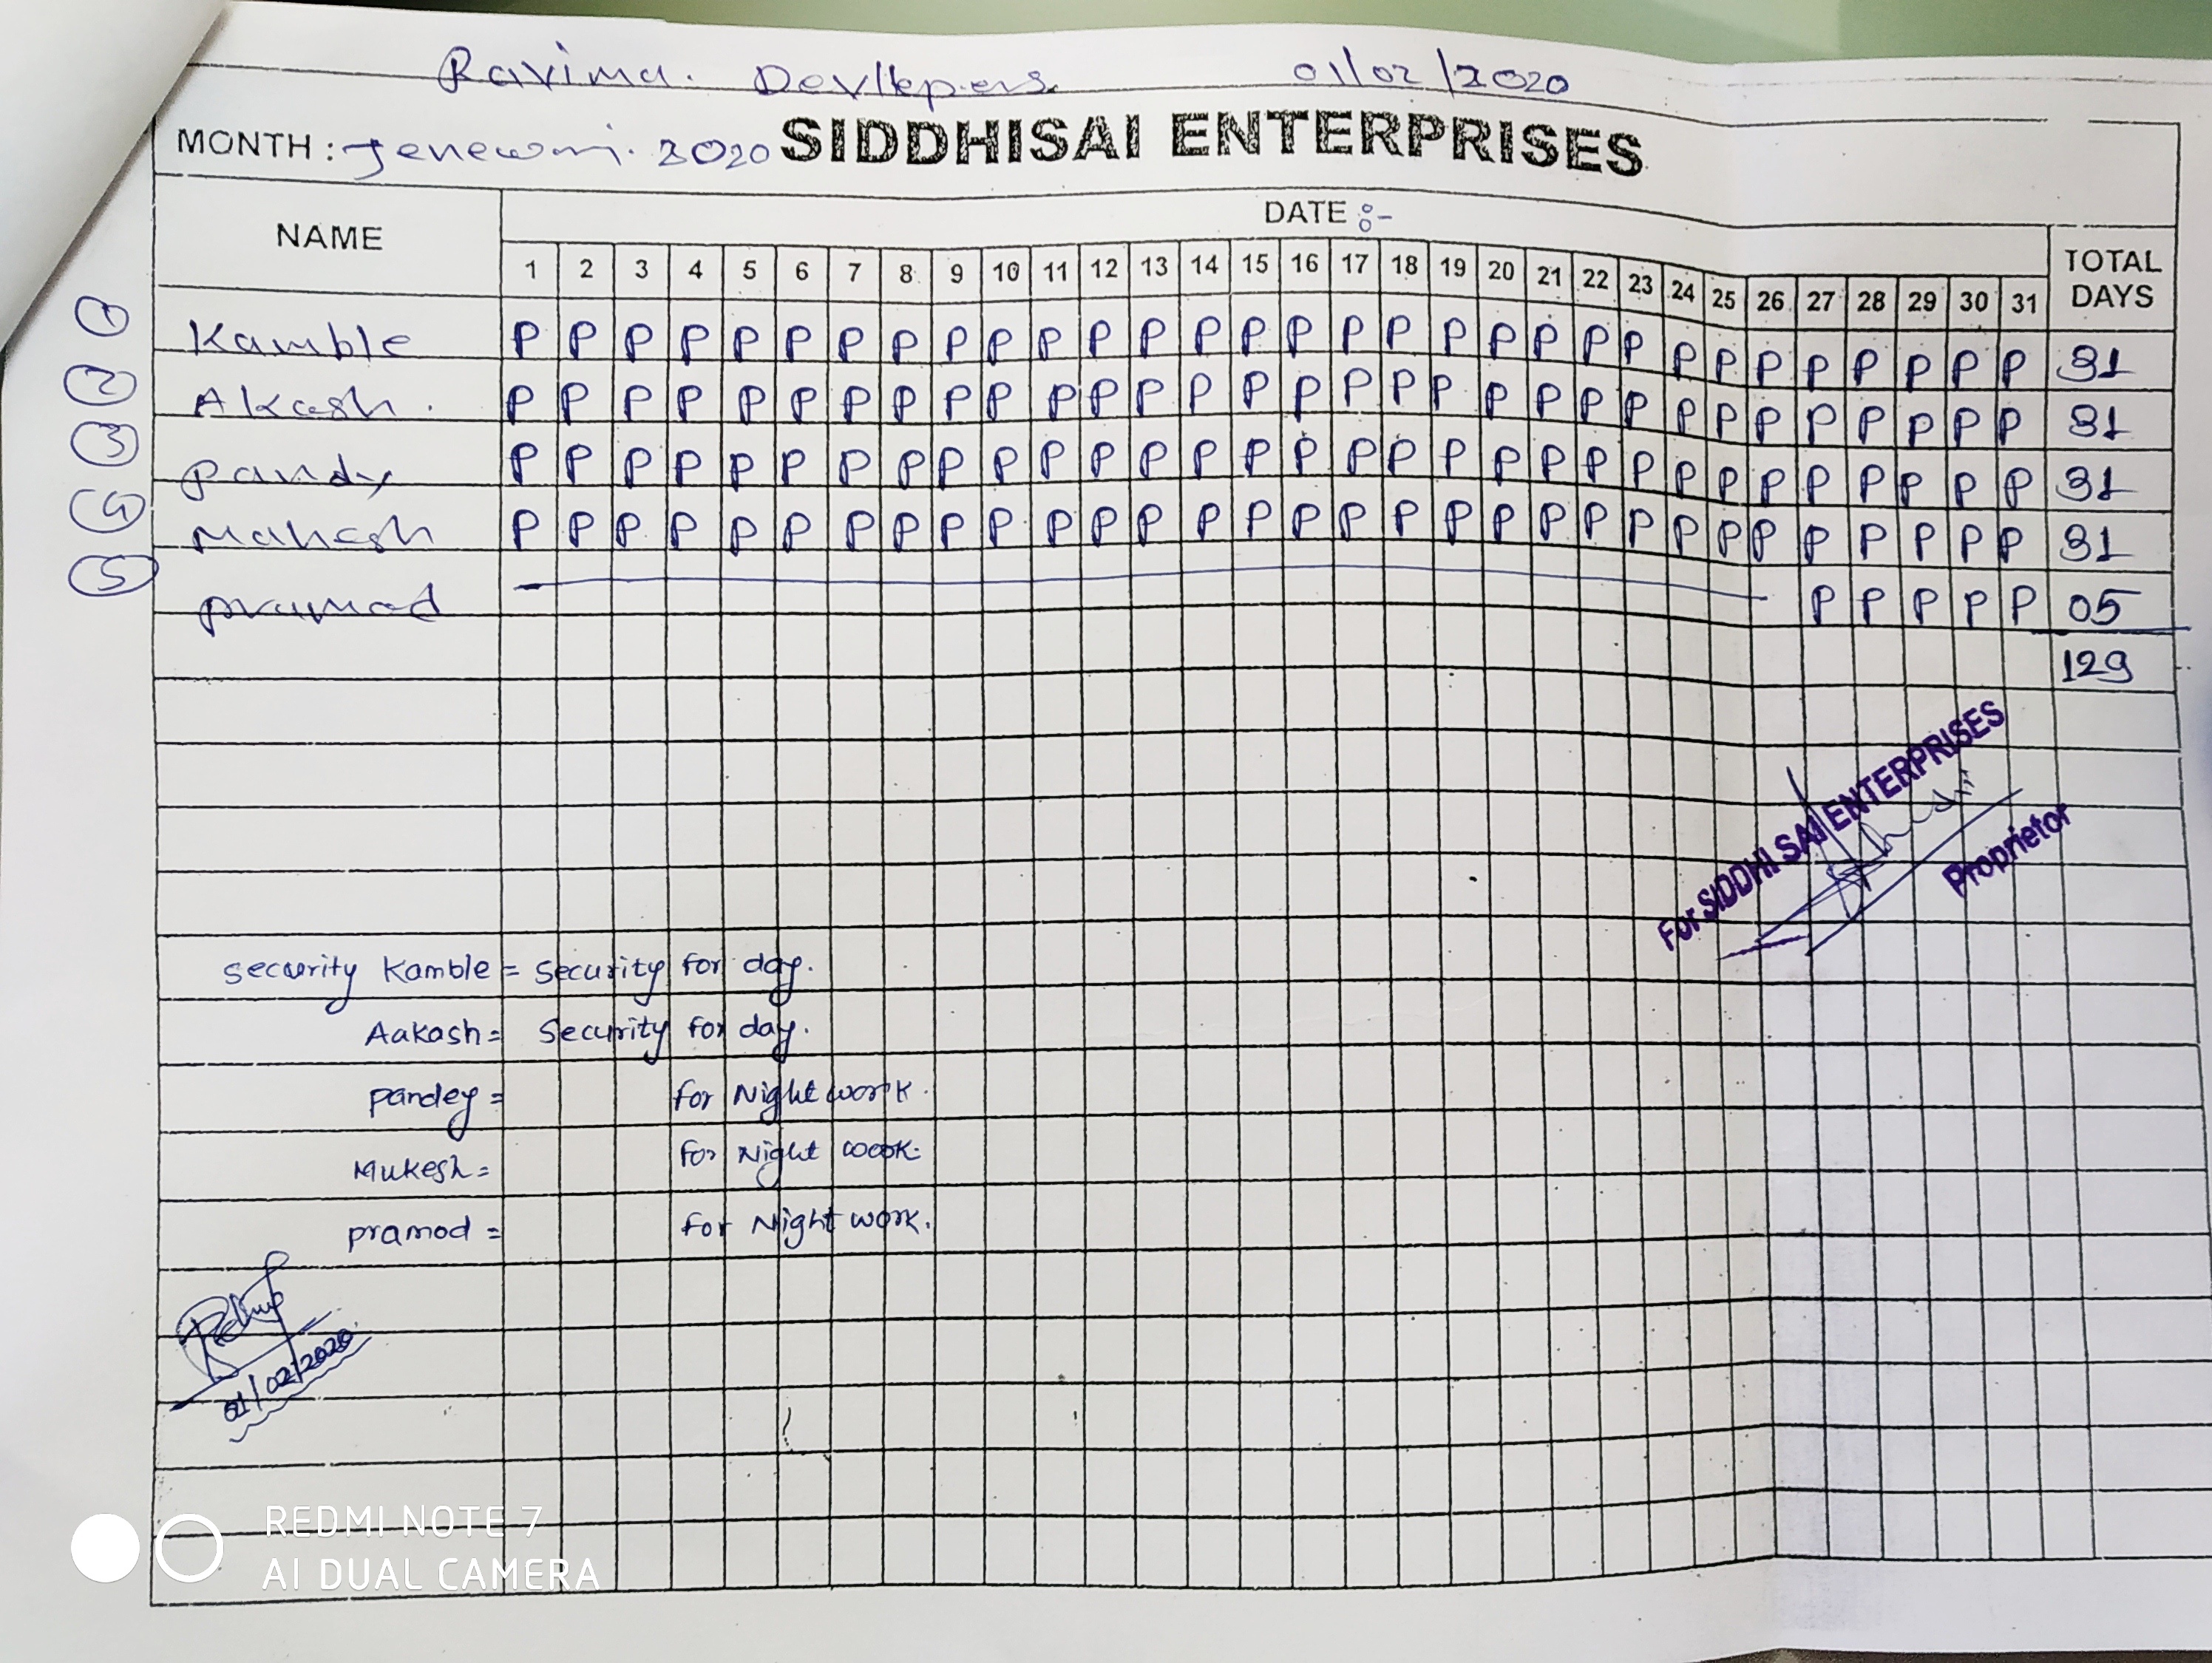 Ravima. Devllepers 01/02/2020
MONTH: Jenewari. 2020 SIDDHISAI ENTERPRISES
NAME DATE :- TOTAL DAYS
1 2 3 4 5 6 7 8 9 10 11 12 13 14 15 16 17 18 19 20 21 22 23 24 25 26 27 28 29 30 31
1 Kamble P P P P P P P P P P P P P P P P P P P P P P P P P P P P P P P 31
2 Akash. P P P P P P P P P P P P P P P P P P P P P P P P P P P P P P P 31
3 Pandy P P P P P P P P P P P P P P P P P P P P P P P P P P P P P P P 31
4 Mahesh P P P P P P P P P P P P P P P P P P P P P P P P P P P P P P P 31
5 pramod P P P P P 05
129
For SIDDHI SAI ENTERPRISES
Proprietor
security Kamble = security for day.
Aakash = Security for day.
pandey = for Night work.
Mukesh = for Night work.
pramod = for Night work.
01/02/2020
REDMI NOTE 7
AI DUAL CAMERA